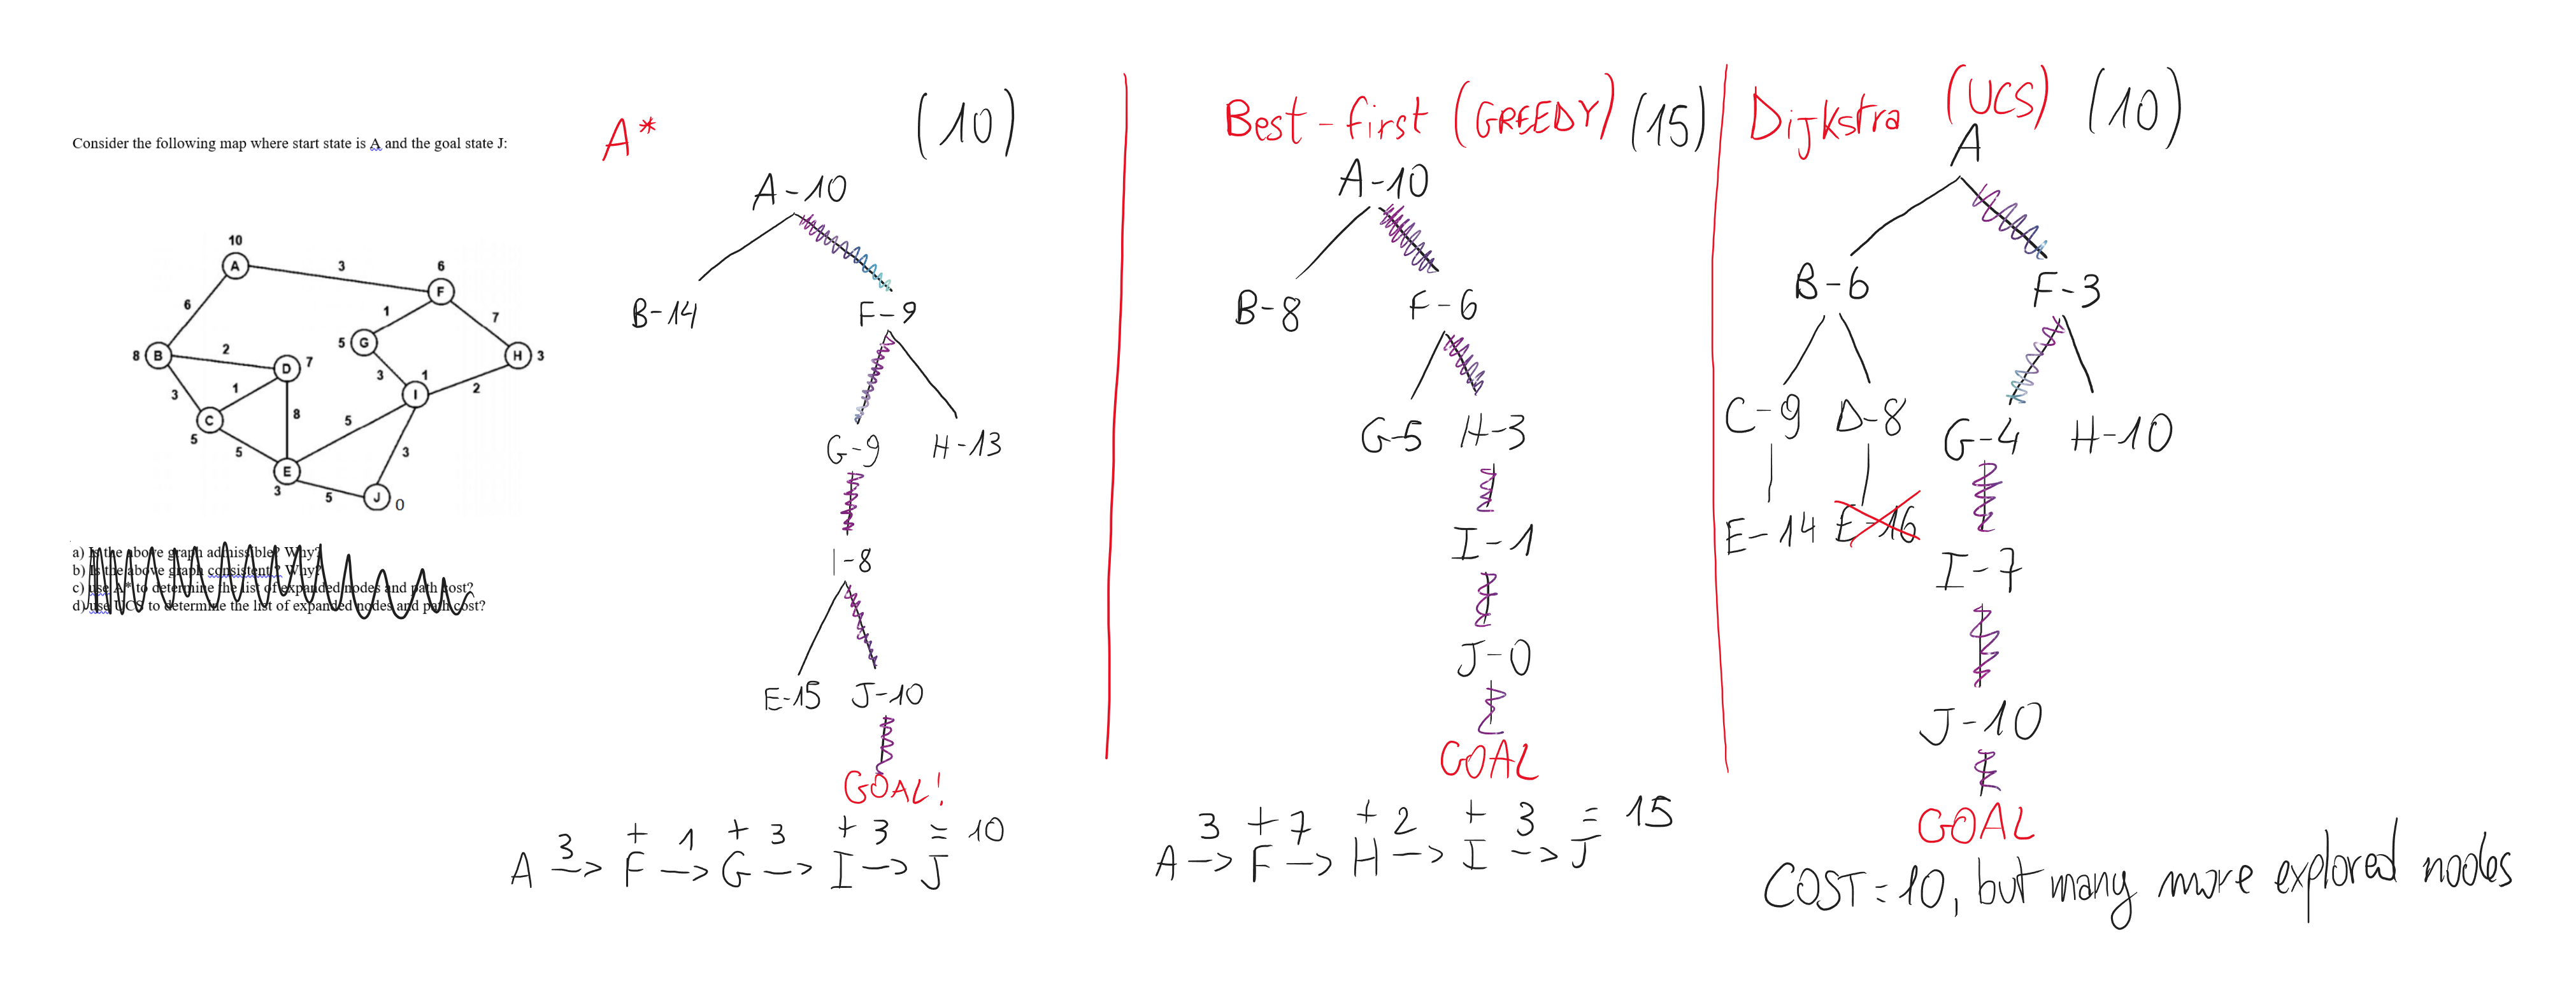 Consider the following map where start state is A and the goal state J:
10
A
3
6
F
6
1
7
5 G
8 B
2
D 7
H 3
3
1
I
2
3
1
C
5
8
5
5
E
3
3
5
J 0
a) Is the above graph admissible? Why?
b) Is the above graph consistent? Why?
c) use A* to determine the list of expanded nodes and path cost?
d) use UCS to determine the list of expanded nodes and path cost?
A* (10)
A-10
B-14 F-9
G-9 H-13
I-8
E-15 J-10
GOAL!
3 + 1 + 3 + 3 = 10
A -> F -> G -> I -> J
Best-first (GREEDY) (15)
A-10
B-8 F-6
G-5 H-3
I-1
J-0
GOAL
3 + 7 + 2 + 3 = 15
A -> F -> H -> I -> J
Dijkstra (UCS) (10)
A
B-6 F-3
C-9 D-8 G-4 H-10
E-14 E-16 I-7
J-10
GOAL
COST=10, but many more explored nodes